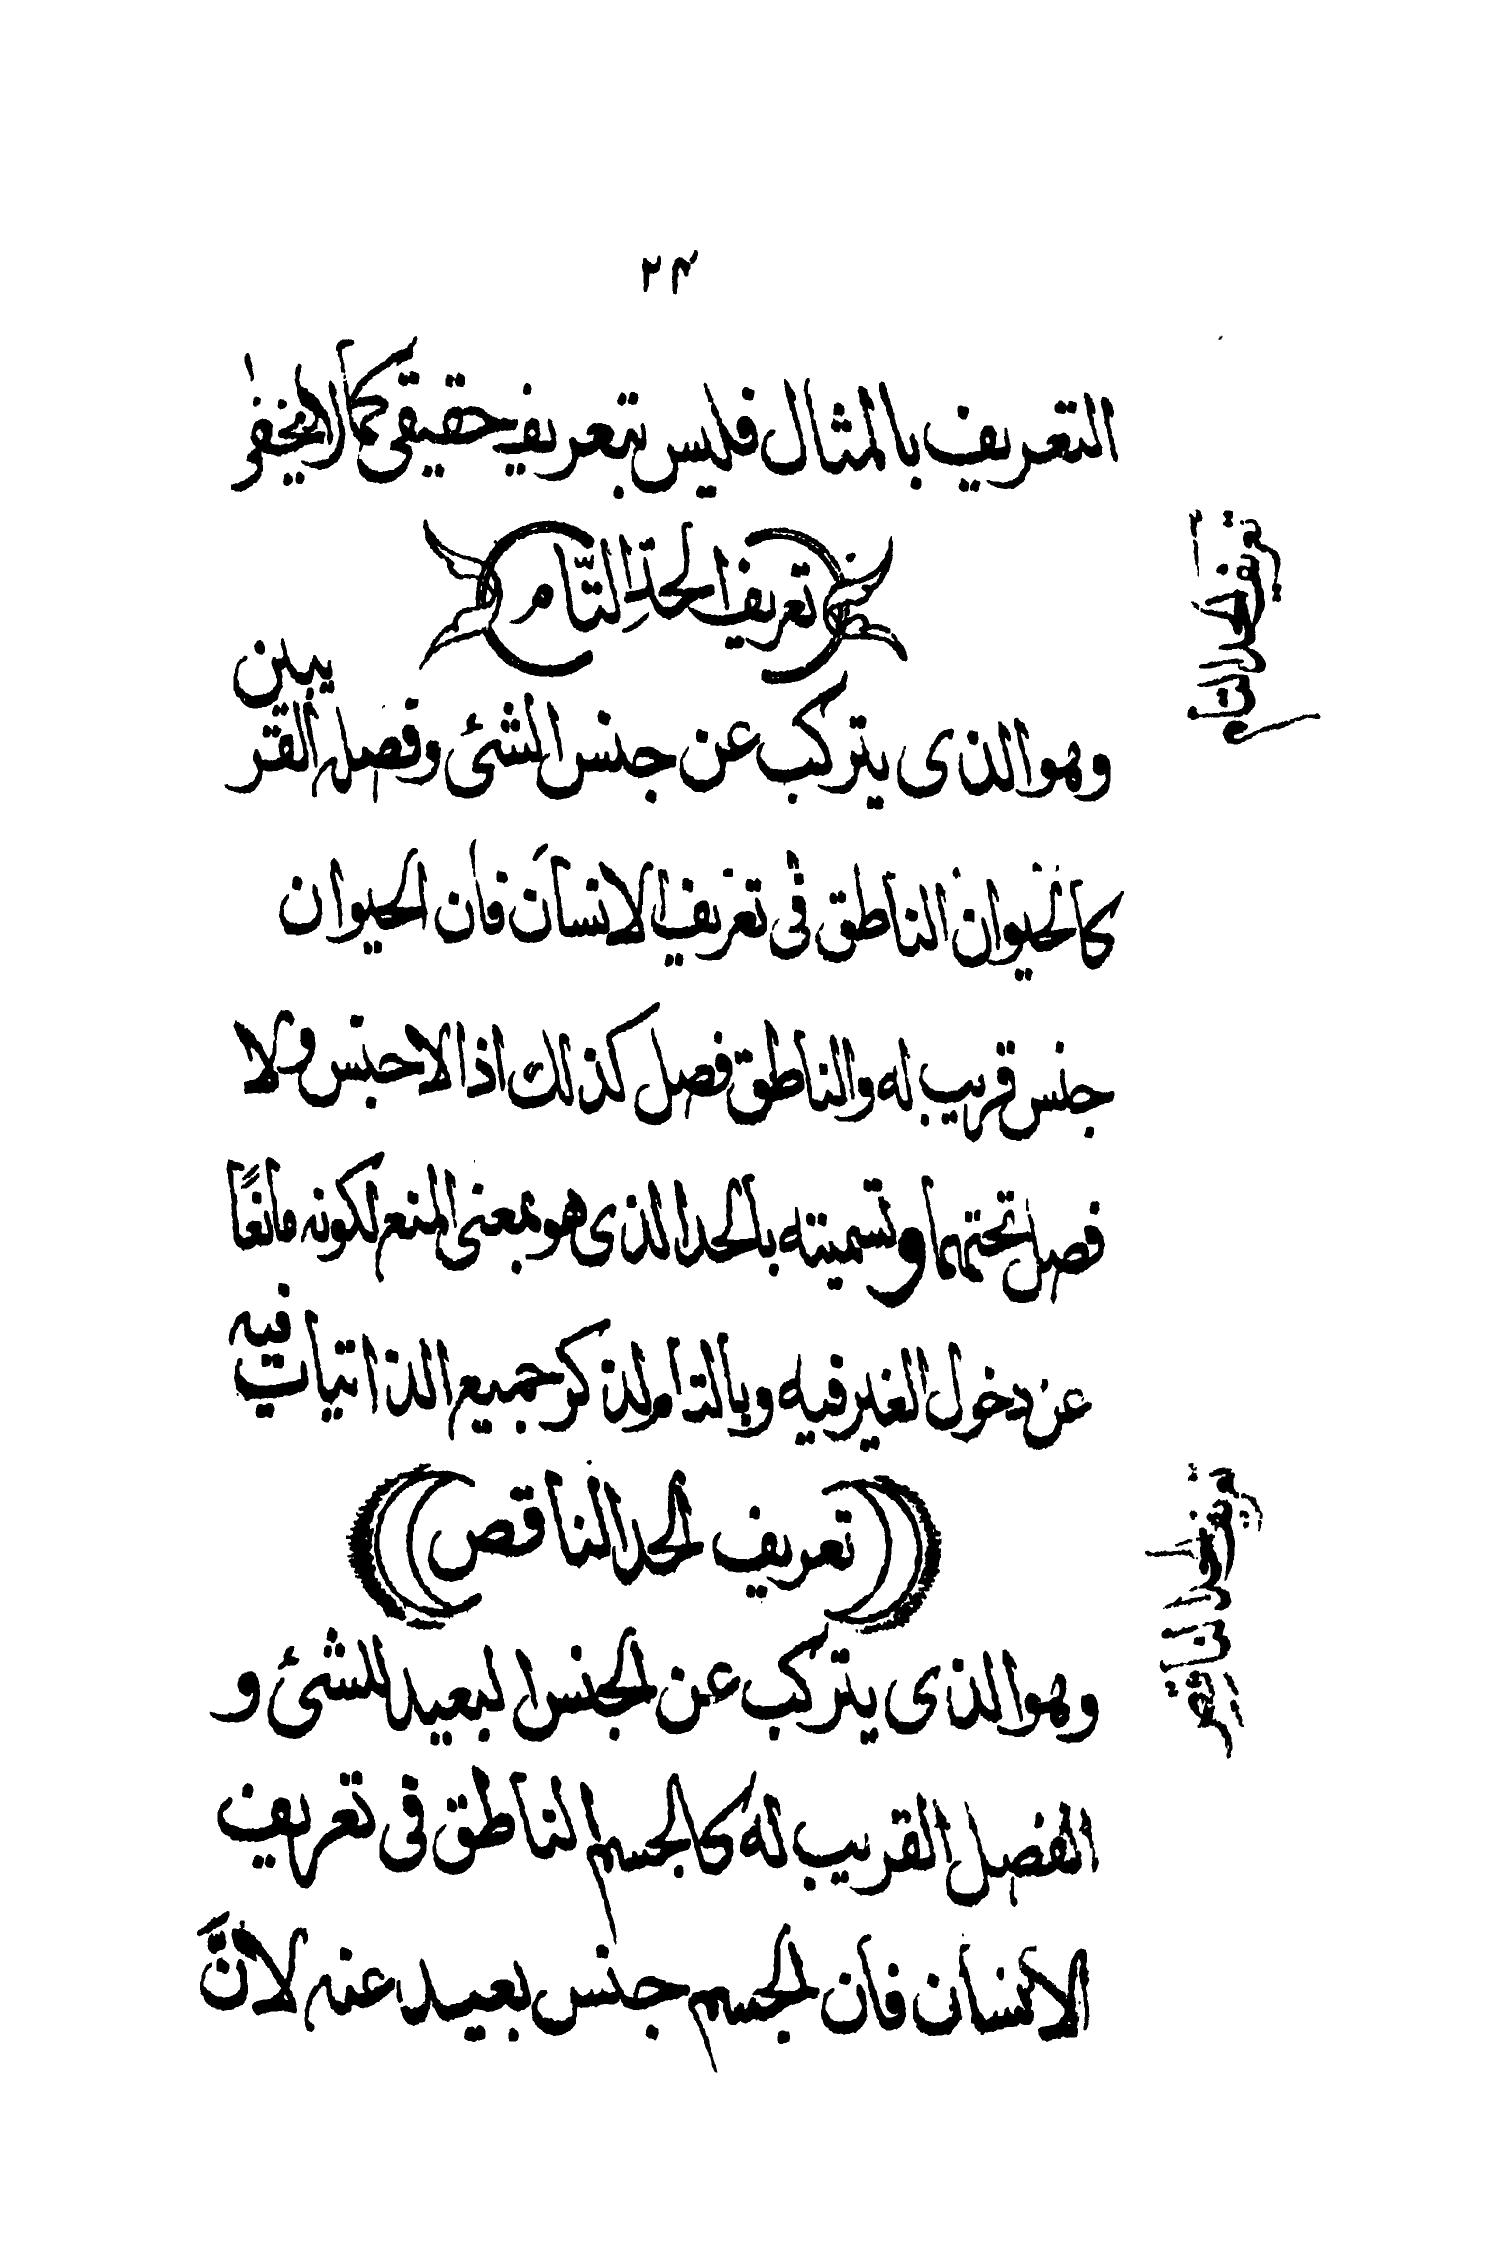 ٢٤
التعريف بالمثال فليس بتعريف حقيقى كما لا يخفى
تعريف الحدِ التّام
تعريف الحد التام
وهو الذى يتركب عن جنس الشئى وفصل القريبين
كالحيوان الناطق فى تعريف الانسان فان الحيوان
جنس قريب له والناطق فصل كذلك اذا لا جنس ولا
فصل تحتهما وتسميته بالحد الذى هو بمعنى المنع لكونه مانعًا
عن دخول الغير فيه وبالتام لذكر جميع الذاتيات فيه
تعريف الحد الناقص
تعريف الحد الناقص
وهو الذى يتركب عن الجنس البعيد للشئى و
الفصل القريب له كالجسم الناطق فى تعريف
الانسان فان الجسم جنس بعيد عنه لانَّ